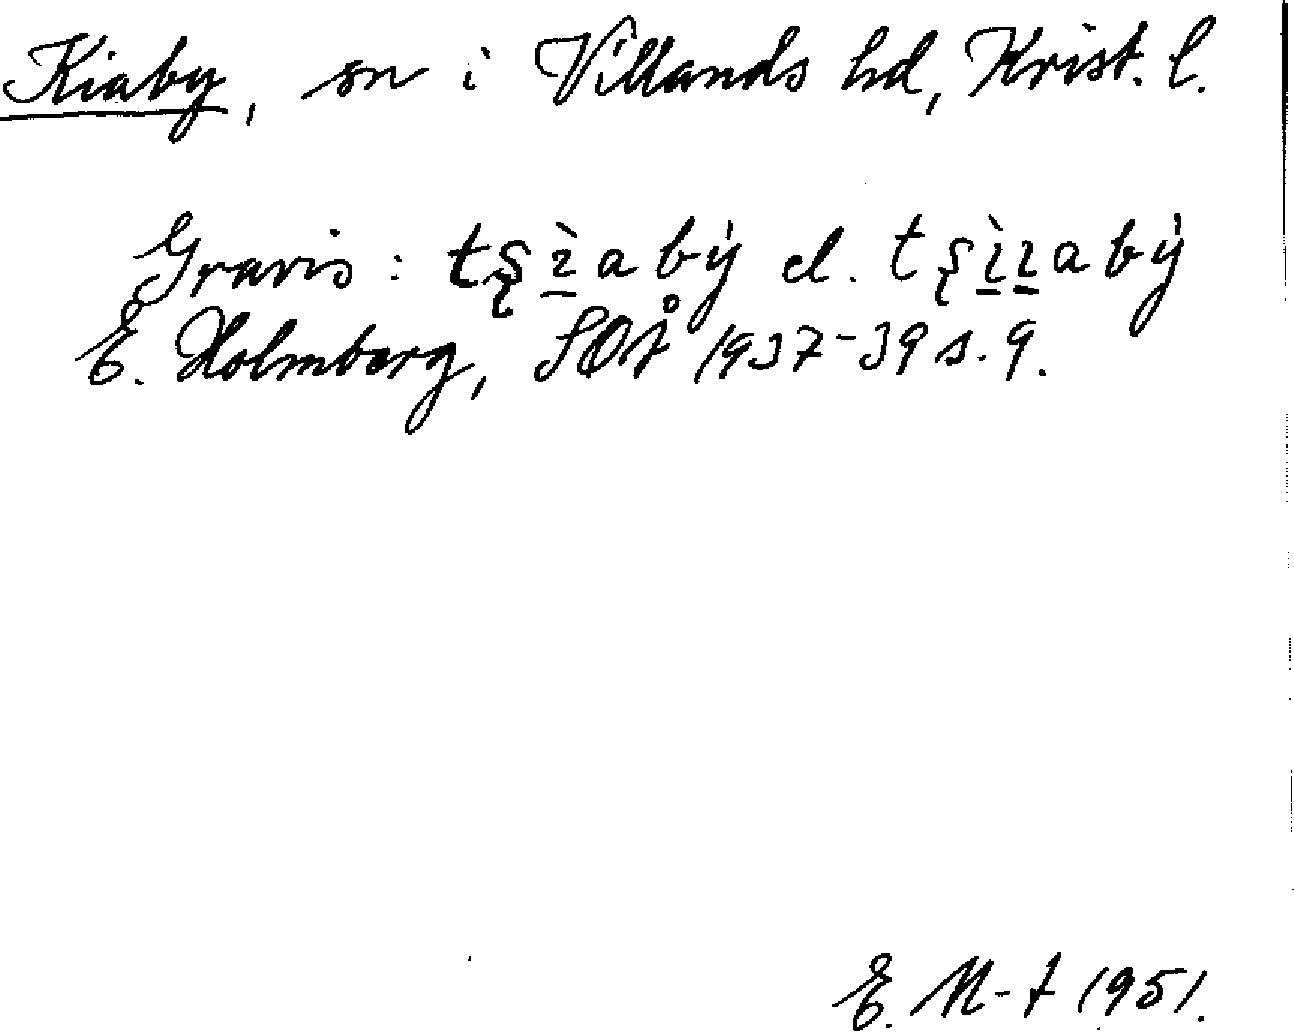 Kiaby, sn i Villands hd, Krist. l.
Gravis: tʂ̨ı̱̀abẏ el. tʂ̨ı̱̀ı̱abẏ
E. Holmberg, SOÅ 1937-39 s. 9.
E. M-t 1951.